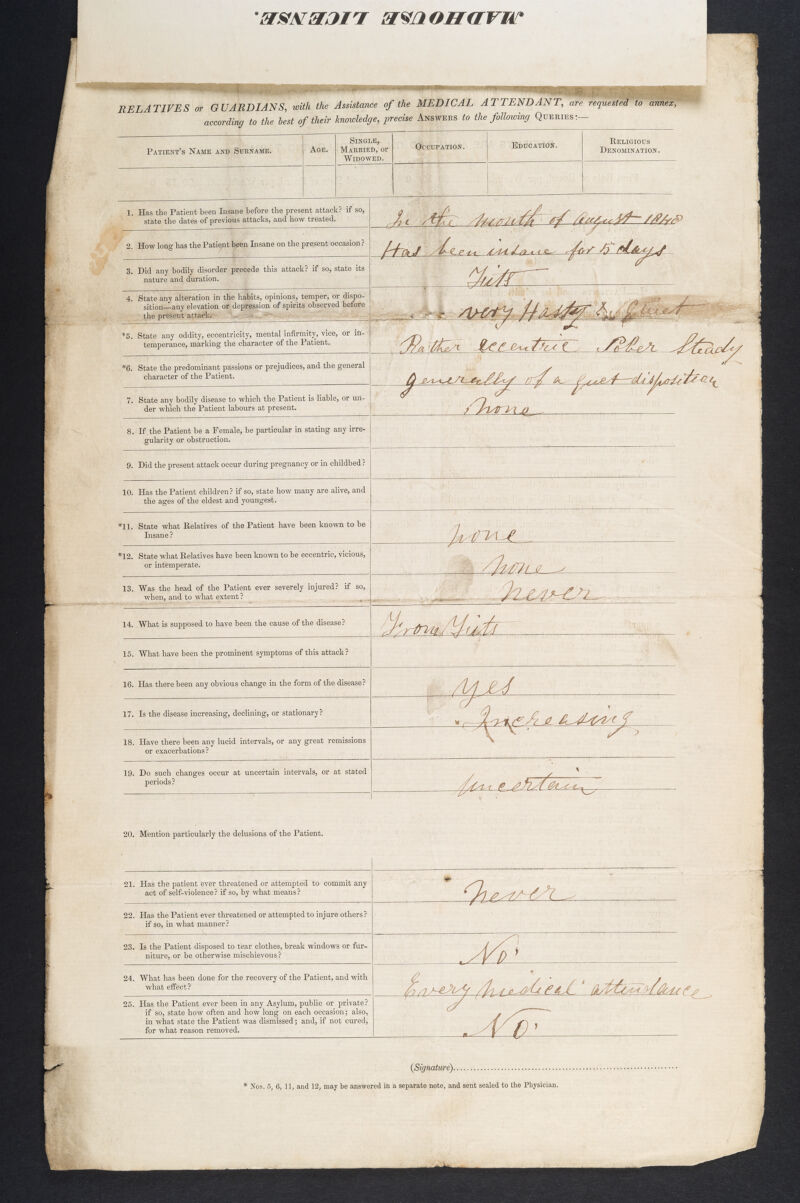 MADHOUSE LICENSE.
RELATIVES or GUARDIANS, with the Assistance of the MEDICAL ATTENDANT, are requested to annex,
according to the best of their knowledge, precise ANSWERS to the following QUERIES:—
PATIENT'S NAME AND SURNAME.
AGE.
SINGLE,
MARRIED, OR
WIDOWED.
OCCUPATION.
EDUCATION.
RELIGIOUS
DENOMINATION.
1. Has the Patient been Insane before the present attack? if so,
state the dates of previous attacks, and how treated.
In the month of August 1840
2. How long has the Patient been Insane on the present occasion?
Has been insane for 5 days
3. Did any bodily disorder precede this attack? if so, state its
nature and duration.
Fits
4. State any alteration in the habits, opinions, temper, or dispo-
sition—any elevation or depression of spirits observed before
the present attack.
very Hasty & Quiet
*5. State any oddity, eccentricity, mental infirmity, vice, or in-
temperance, marking the character of the Patient.
Rather eccentric Sober Steady
*6. State the predominant passions or prejudices, and the general
character of the Patient.
generally of a quet disposition
7. State any bodily disease to which the Patient is liable, or un-
der which the Patient labours at present.
None
8. If the Patient be a Female, be particular in stating any irre-
gularity or obstruction.
9. Did the present attack occur during pregnancy or in childbed?
10. Has the Patient children? if so, state how many are alive, and
the ages of the eldest and youngest.
*11. State what Relatives of the Patient have been known to be
Insane?
none
*12. State what Relatives have been known to be eccentric, vicious,
or intemperate.
None
13. Was the head of the Patient ever severely injured? if so,
when, and to what extent?
never
14. What is supposed to have been the cause of the disease?
From Fits
15. What have been the prominent symptoms of this attack?
16. Has there been any obvious change in the form of the disease?
yes
17. Is the disease increasing, declining, or stationary?
Increasing
18. Have there been any lucid intervals, or any great remissions
or exacerbations?
19. Do such changes occur at uncertain intervals, or at stated
periods?
uncertain
20. Mention particularly the delusions of the Patient.
21. Has the patient ever threatened or attempted to commit any
act of self-violence? if so, by what means?
Never
22. Has the Patient ever threatened or attempted to injure others?
if so, in what manner?
23. Is the Patient disposed to tear clothes, break windows or fur-
niture, or be otherwise mischievous?
No
24. What has been done for the recovery of the Patient, and with
what effect?
Every Medical attendance
25. Has the Patient ever been in any Asylum, public or private?
if so, state how often and how long on each occasion; also,
in what state the Patient was dismissed; and, if not cured,
for what reason removed.
No
(Signature)
* Nos. 5, 6, 11, and 12, may be answered in a separate note, and sent sealed to the Physician.